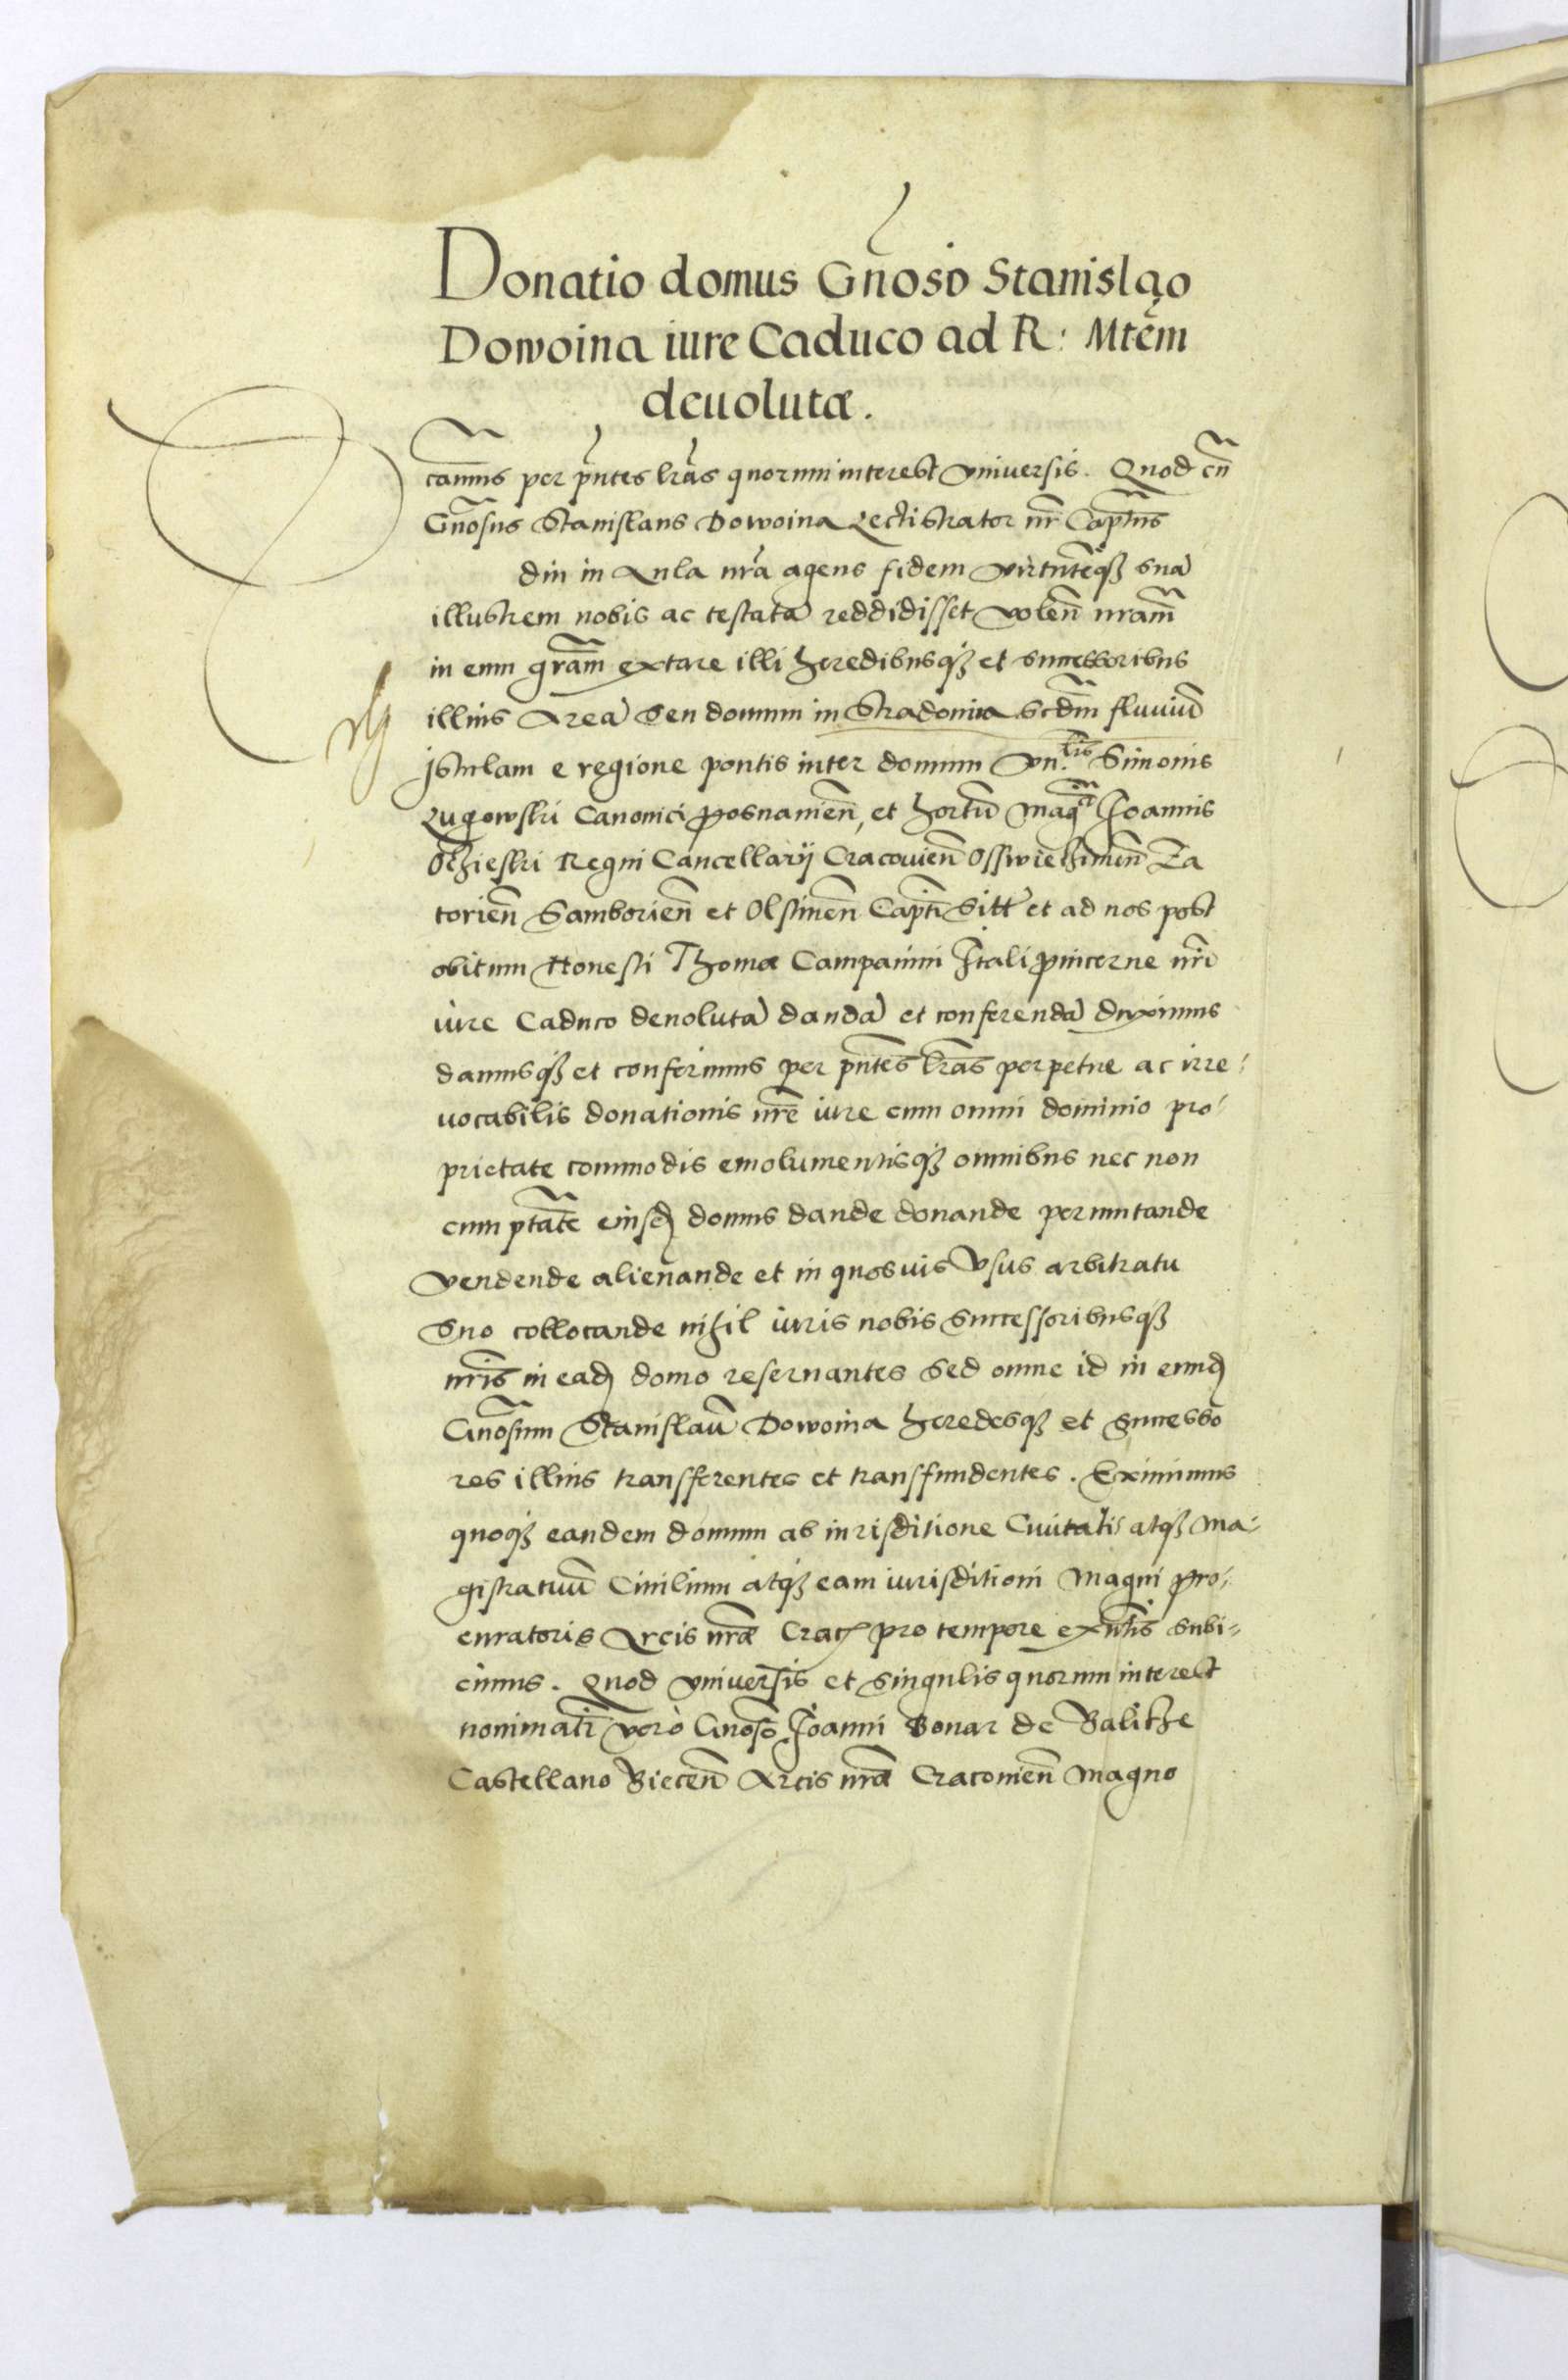 Donatio domus Gnoso Stanislao
Dowoina iure Caduco ad R: Mtem
deuolutæ.
camus per pntes lras quorum interest vniuersis. Quod cu
Gnosus Stanislaus Dowoina Lectistrator nr Captns
diu in Aula nra agens fidem virtutemq3 sua
illustrem nobis ac testata reddidisset volen nram
in eum gram extare illi heredibusq3 et successoribus
illius Area seu domum in Stradomia Scdm fluuiu
Istulam e regione pontis inter domum Vn.lis Simonis
Lugowski Canonici Posnanien, et hortu Magci Joannis
Othieski Regni Cancellarij Cracouien Osswiethimen Za
torien Samborien et Olstinen Capti sitt et ad nos post
obitum Honesti Thomæ Campanini Itali Pincerne nri
iure Caduco deuoluta danda et conferenda duximus
damusq3 et conferimus per pntes lras perpetue ac irre
uocabilis donationis nre iure cum omni dominio pro
prietate commodis emolumentisq3 omnibus nec non
cum ptate eiusd domus dande donande permutande
vendende alienande et in quosuis vsus arbitratu
suo collocande nihil iuris nobis successoribusq3
nris in ead domo reseruantes sed omne id in eumd
Gnosum Stanislau Dowoina heredesq3 et successo
res illius transferentes et transfundentes. Eximimus
quoq3 eandem domum ab iurisditione Ciuitatis atq3 Ma
gistratuu Ciuilium atq3 eam iurisditioni Magni Pro
curatoris Arcis nræ Crac pro tempore exntis subi=
cimus. Quod vniuersis et singulis quorum interest
nominati vero Gnoso Joanni Bonar de Balithe
Castellano Biecen Arcis nræ Cracouien Magno